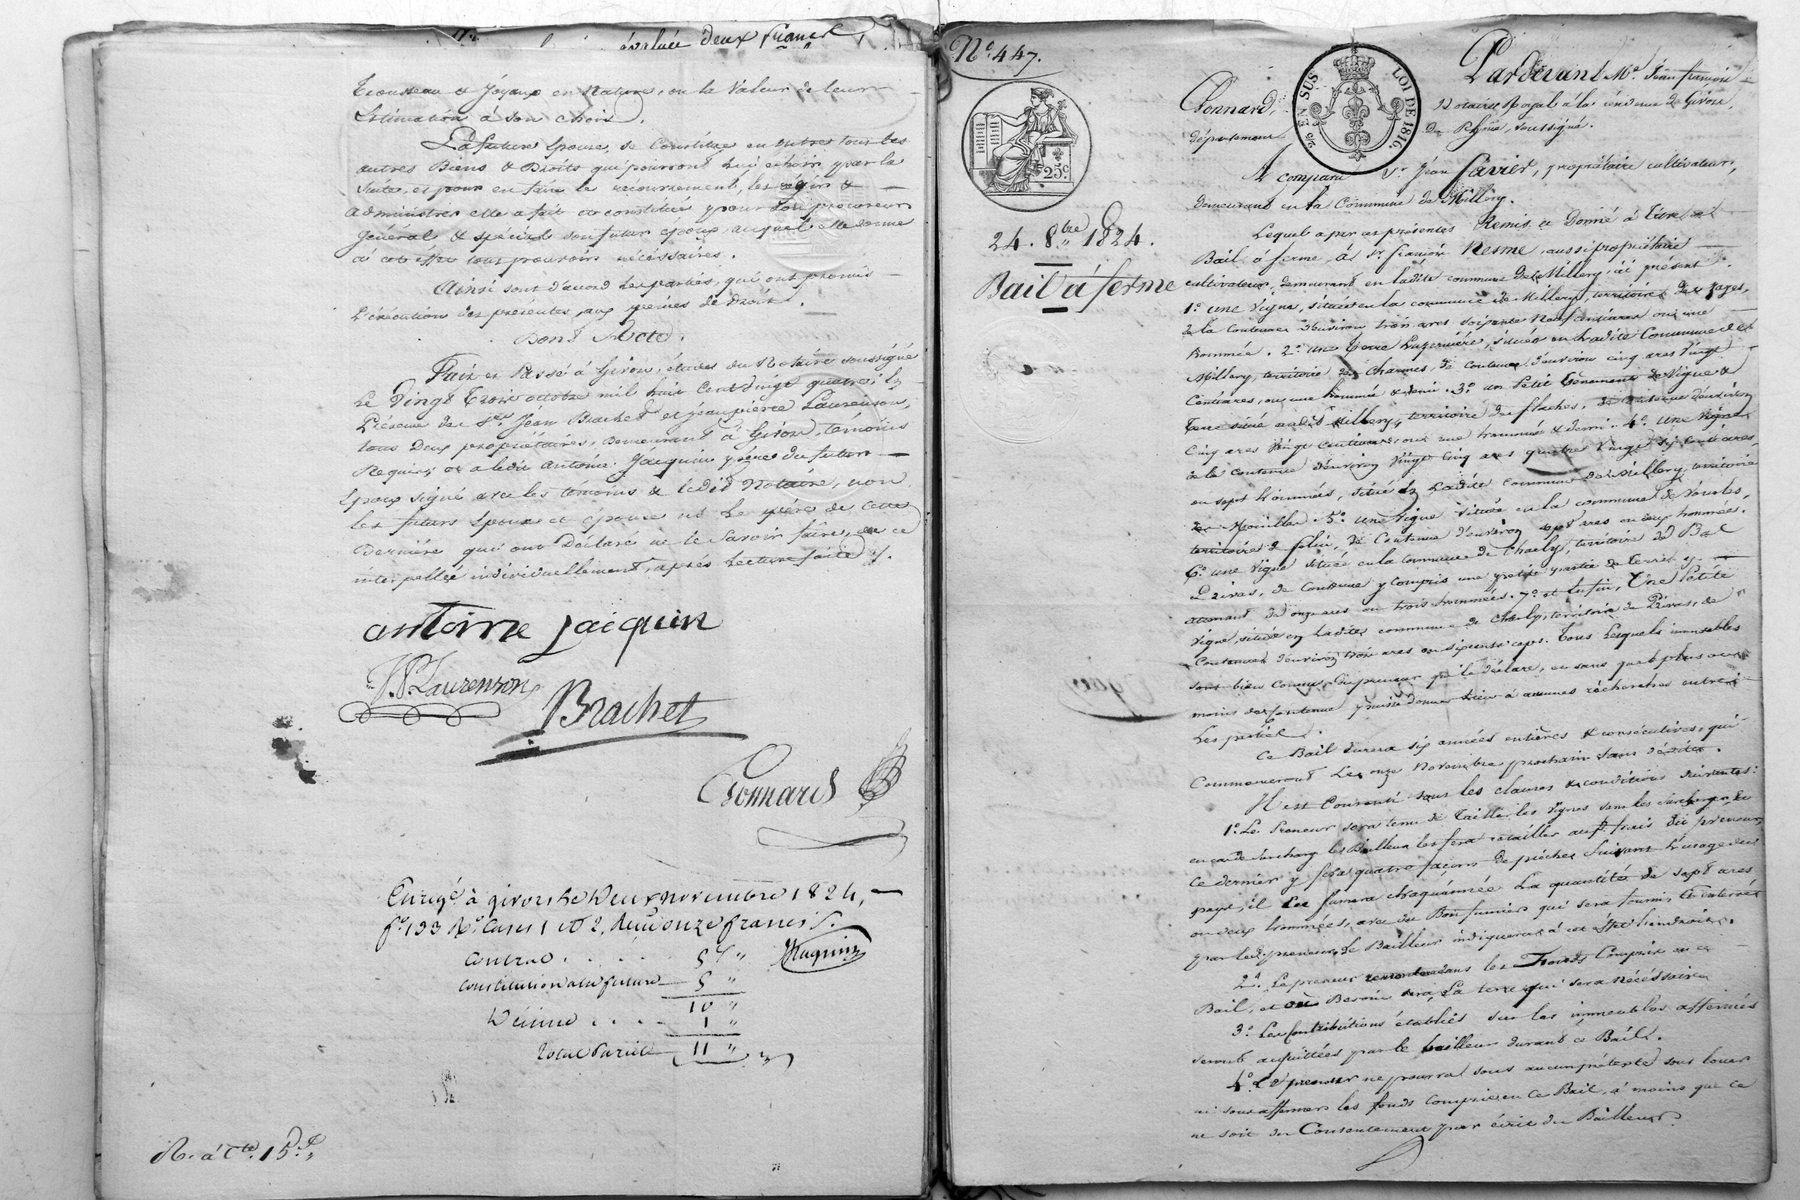 évaluée deux francs
Trousseau & Joyaux en Nature, ou la Valeur de leur
Estimation à son choix.
La future Epouse, se Constitue en outre tous les
autres Biens & Droits qui pourront lui échoir par la
Suite, et pour en faire le recouvrement, les régir &
administrer elle a fait & constitué pour son procureur
général & spécial son futur epoux auquel elle donne
à cet effet tous pouvoirs nécéssaires.
Ainsi sont d'accord les parties, qui ont promis
L'éxécution des présentes, aux peines de droit.
Dont Acte.
Fait et Passé à Givors, études du Notaire soussigné
Le Vingt Trois octobre mil huit cent vingt quatre; En
Présence de Srs Jean Brachet et jean pierre Laurenson,
tous Deux propriétaires, Demeurant à Givors, témoins
Requis; et a ledit Antoine Jacquin père du futur
Epoux signé avec les témoins & ledit Notaire, non
les futurs Epoux et épouse ni le père de cette
Dernière qui ont Déclaré ne le Savoir faire, de ce
interpellés individuellement, après Lecture faite.
antoine jacquin
J. P. Laurenson
Brachet
Bonnard
Enrgé à givors le Deux novembre 1824,
fo 133 Ro Cases 1 et 2, Reçu onze francs
Contrat . . . . . 5 f "
Constitution à la future 5 "
10 "
Décime . . . . 1 "
Total Pareil 11 "
R. à Cte. 15 f.
No. 447.
25c
EN SUS
LOI DE 1816.
24. 8bre 1824.
Bail à ferme
Pardevant Me. Jean françois
Bonnard, Notaire Royal à la résidence de Givors,
département du Rhône, soussigné.
A comparu Sr. Jean Favier, propriétaire cultivateur,
demeurant en la Commune de Millery.
Lequel a par ces présentes Remis et Donné à titre de
Bail à ferme à Sr. françois Nesme, aussi propriétaire
cultivateur, demeurant en ladite commune de Millery, ici présent
1o. une Vigne, située en la commune de Millery, territoire des
de la Contenue d'environ trois ares soixante Neuf centiares ou une
hommée. 2o. une terre Luzernière, située en ladite Commune de
Millery, territoire des Charmes, de contenue d'environ cinq ares Vingt
Centiares, ou une hommée & demie. 3o. un Petit tènement de Vigne &
Terre situé audit Millery, territoire des flaches, de contenue d'environ
Cinq ares Vingt Centiares ou une hommée & demi. 4o. une Vigne
de la contenue d'environ Vingt Cinq ares quatre Vingt centiares
ou sept hommées, située en ladite commune de Millery, territoire
de Mouillon. 5o. une Vigne située en la commune de Vourles,
territoire de, de Contenue d'environ sept ares ou deux hommées.
6o. une Vigne située en la commune de Charly, territoire de Bal
de Contenue y compris une petite partie de terre y
attenant de onze ares ou trois hommées. 7o. et Enfin, Une Petite
Vigne, située en ladite commune de Charly, territoire de, de
contenue d'environ trois ares ou Tous Lesquels immeubles
sont bien connus du preneur qui le déclare, & sans que le plus ou le
moins de Contenue puisse donner lieu à aucunes recherches entre
les parties.
Ce Bail durera six années entières & consécutives, qui
Commenceront Le onze Novembre prochain sans dédite.
Il est Consenti sous les clauses & conditions suivantes:
1o. Le Preneur sera tenu de tailler les Vignes sans les surcharger
en cas de surcharge le Bailleur les fera retailler aux frais du preneur,
Ce dernier y fera quatre façons de pioches Suivant L'usage du
pays, il en fumera chaque année la quantité de sept ares
ou deux hommées, avec du Bon fumier qui sera fourni & enterré
par le preneur, le Bailleur indiquera à cet effet l'endroit.
2o. Le preneur remontera dans les Fonds Compris en ce
Bail, et où Besoin sera, La terre qui sera nécéssaire
3o. Les Contributions établies sur les immeubles affermés
seront acquittées par le bailleur durant ce Bail.
4o. Le preneur ne pourra sous aucun prétexte sous louer
ni sous affermer les fonds compris en ce Bail, à moins que ce
ne soit du Consentement par écrit du Bailleur.